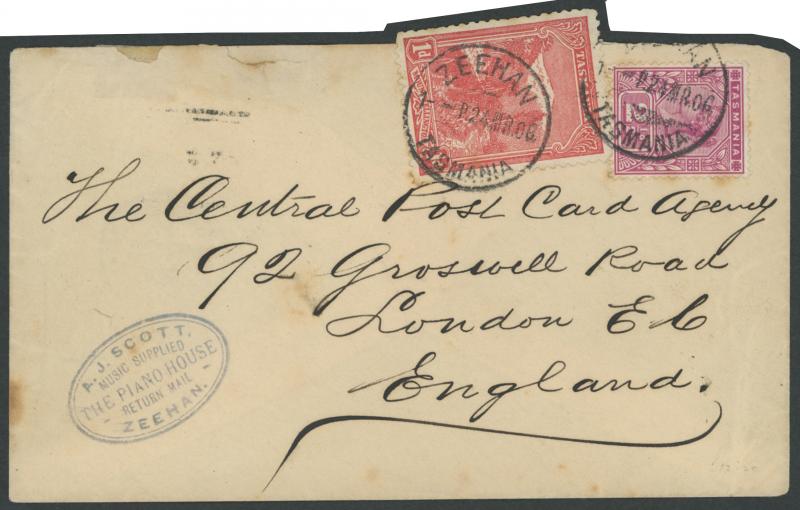 1d
TAS
ZEEHAN
1- -P.24.MR.06
TASMANIA
1- -P.24.MR.06
TASMANIA
TASMANIA
The Central Post Card Agency
92 Groswell Road
London E C
England.
A. J. SCOTT,
MUSIC SUPPLIED
THE PIANO HOUSE
- RETURN MAIL -
ZEEHAN.